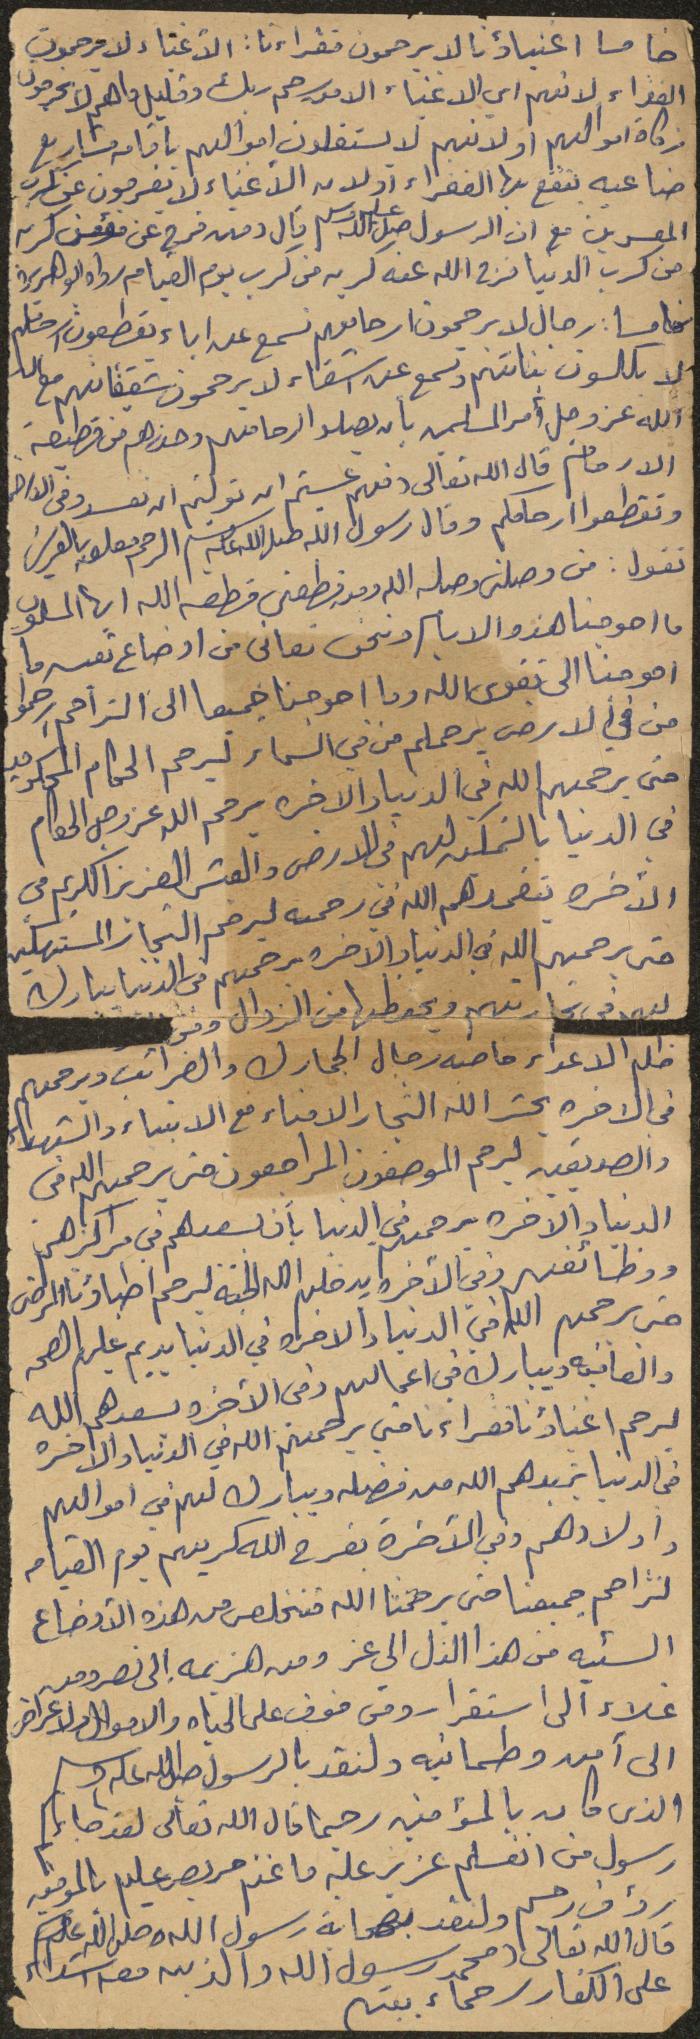 خامسا اغنياؤنا لا يرحمون فقراءنا: الأغنياء لا يرحمون
الفقراء لانهم اي الاغنياء الا من رحم ربك وقليل ما هم لا يخرجون
زكاة اموالهم او لانهم لا يستغلون اموالهم باقامه مشاريع
صناعيه ينتفع بها الفقراء او لان الأغنياء لا يفرجون عن كرب
المعسرين مع ان الرسول صلى الله عليه وسلم قال ومن فرج عن مؤمن كربه
من كرب الدنيا فرج الله عنه كربه من كرب يوم القيامه رواه ابو هريره
خامسا: رجال لا يرحمون ارحامهم نسمع عن اباء يقطعون ارحامهم
لا يكلمون بناتهم ونسمع عن اشقاء لا يرحمون شقيقاتهم مع ان
الله عز وجل أمر المسلمين بأن يصلوا ارحامهم وحذرهم من قطيعة
الارحام قال الله تعالى (فهل عسيتم ان توليتم ان تفسدوا في الارض
وتقطعوا ارحامكم وقال رسول الله صلى الله عليه وسلم الرحم معلقه بالعرش
تقول: من وصلني وصله الله ومن قطعني قطعه الله ايها المسلمون
ما احوجنا هذه الايام ونحن نعاني من اوضاع تعيسه ما
احوجنا الى تقوى الله وما احوجنا جميعا الى التراحم ارحموا
من في الارض يرحمكم من في السماء ليرحم الحكام المحكومين
حتى يرحمهم الله في الدنيا والاخره يرحم الله عز وجل الحكام
في الدنيا بالتمكين لهم في الارض والعيش العزيز الكريم في
الأخره يتغمدهم الله في رحمته ليرحم التجار المستهلكين
حتى يرحمهم الله في الدنيا والاخره يرحمهم في الدنيا يبارك
لهم في تجارتهم ويحفظها من الزوال ومن
ظلم الاعداء خاصه رجال الجمارك والضرائب ويرحمهم
في الاخره يحشر الله التجار الامناء مع الانبياء والشهداء
والصديقين ليرحم الموظفون المراجعون حتى يرحمهم الله في
الدنيا والاخره يرحمهم في الدنيا بأن يسعدهم في مراكزهم
ووظائفهم وفي الأخره يدخلهم الله الجنة ليرحم اطباؤنا المرضى
حتى يرحمهم الله في الدنيا والاخره في الدنيا يديم عليهم الصحه
والعافيه ويبارك في اعمالهم وفي الأخره يسعدهم الله
ليرحم اغنياؤنا فقراءنا حتى يرحمهم الله في الدنيا والاخره
في الدنيا يزيدهم الله من فضله ويبارك لهم في اموالهم
وأولادهم وفي الأخرة يفرج الله كربهم يوم القيامه
لنتراحم جميعنا حتى يرحمنا الله فنتخلص من هذه الأوضاع
السئيه من هذا الذل الى عز ومن هزيمه إلى نصر ومن
غلاء الى استقرار ومن خوف على الحياه والاموال والاعراض
الى أمن وطمانينه ولنقتد بالرسول صلى الله عليه وسلم
الذي كان بالمؤمنين رحيما قال الله تعالى لقد جاءكم
رسول من انفسكم عزيز عليه ما عنتم حريص عليكم بالمؤمنين
رؤف رحيم ولنقتد بصحابة رسول الله صلى الله عليه وسلم
قال الله تعالى (محمد رسول الله والذين معه اشداء
على الكفار رحماء بينهم